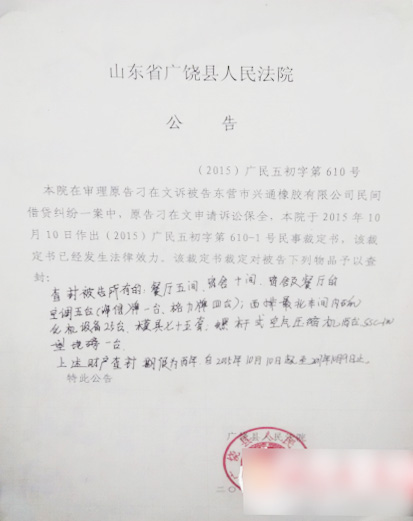 山东省广饶县人民法院
公 告
（2015）广民五初字第 610 号
本院在审理原告刁在文诉被告东营市兴通橡胶有限公司民间
借贷纠纷一案中，原告刁在文申请诉讼保全，本院于 2015 年 10
月 10 日作出（2015）广民五初字第 610-1 号民事裁定书，该裁
定书已经发生法律效力。该裁定书裁定对被告下列物品予以查
封：
查封被告所有的：餐厅五间，宿舍十间，宿舍及餐厅台
空调五台（海信牌一台、格力牌四台）；西墙最北车间内
化机设备23台，模具七十五套，螺杆式空气压缩机两台
型 一台
上述财产查封期限为两年自2015年10月10日起至2017年10月9日止。
特此公告
广饶县人民法院
二〇